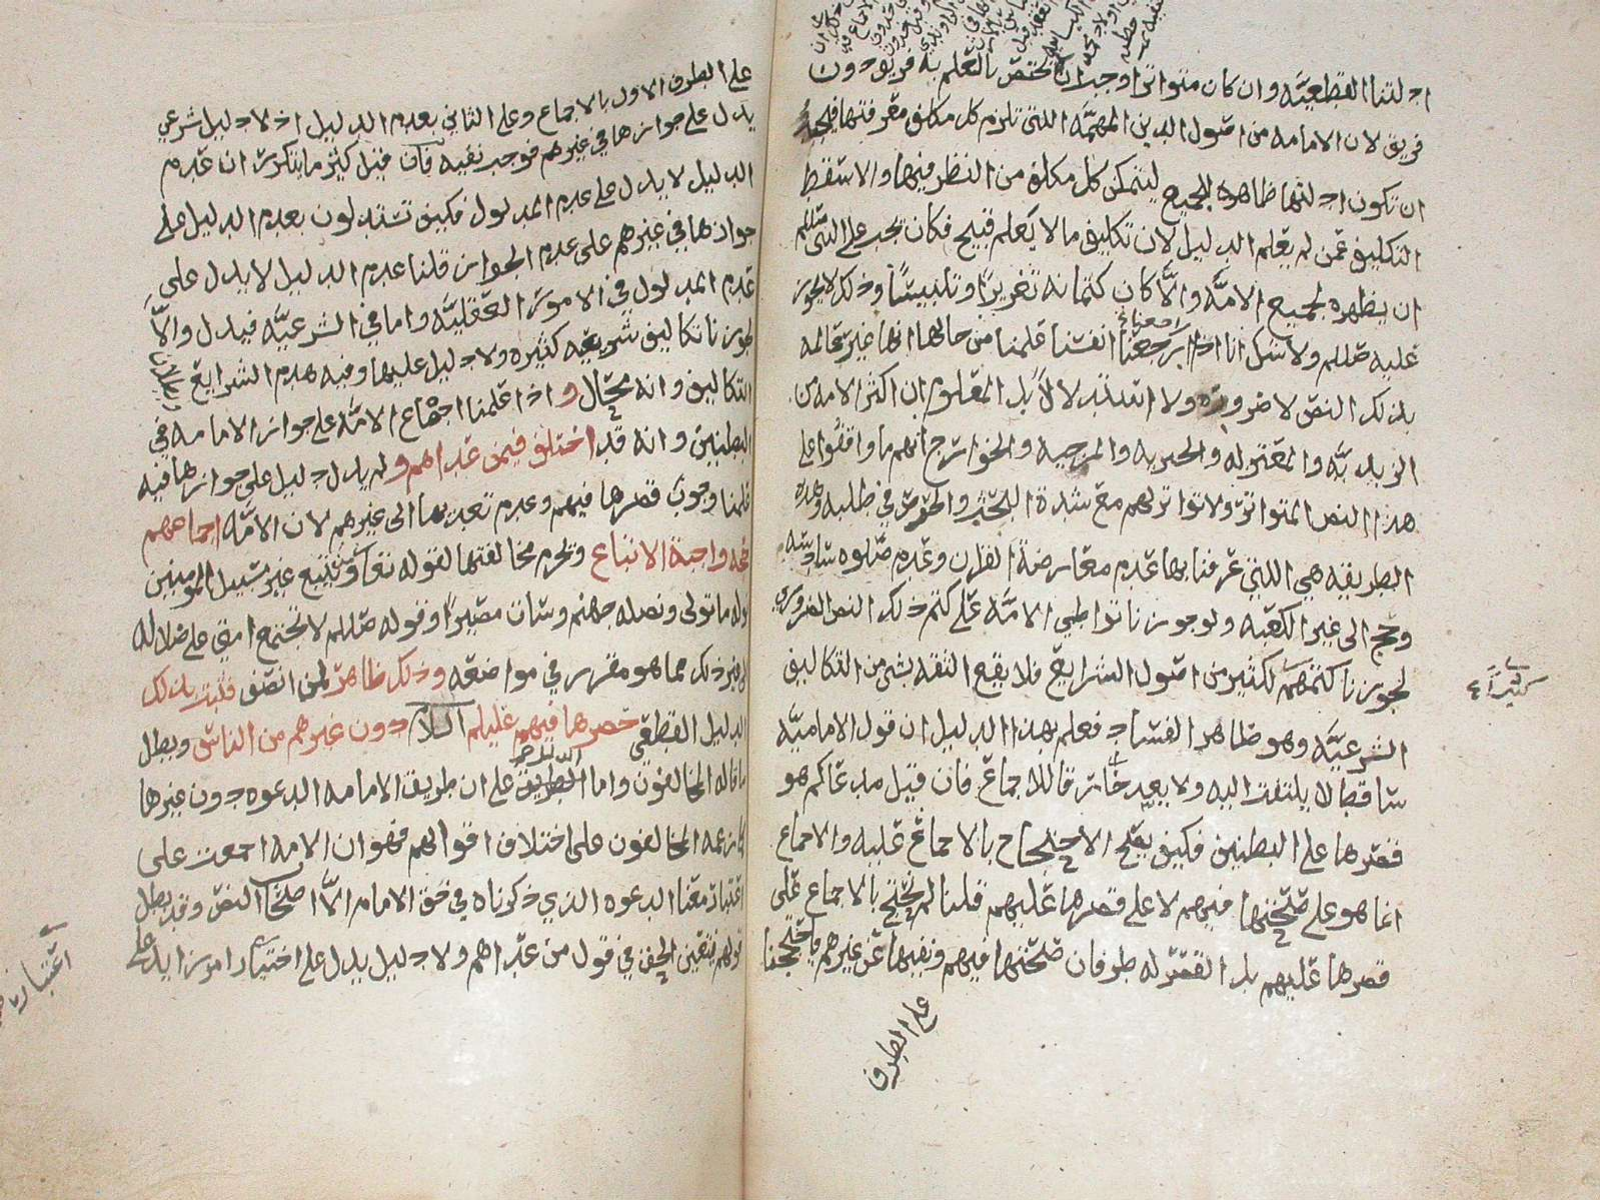 ادلتنا القطعيه وان كان متواترا وجب ان لا يختص بالعلم به فريق دون
فريق لان الامامه من اصول الدين المهمه اللتي تلزم كل مكلف معرفتها فيجب
ان تكون ادلتها ظاهره للجميع ليتمكن كل مكلف من النظر فيها والا سقط
التكليف عمن لم يعلم الدليل لان تكليف ما لا يعلم قبيح فكان يجب على النبي صللم
ان يظهره لجميع الامه والا كان كتمانه تغريرا وتلبيسا وذلك لا يجوز
عليه صللم ولا شك انا اذا راجعنا انفسنا علمنا من حالها انها غير عالمه
بذلك النص لا ضرورة ولا استدلالا بل المعلوم ان اكثر الامه من
الزيديه والمعتزله والجبريه والمرجيه والخوارج انهم ما وافقوا على
هذا النص المتواتر ولا تواتر لهم مع شدة البحث والحرص في طلبه وهذه
الطريقه هي اللتي عرفنا بها عدم معارضة القران وعدم صلوه سادسه
وحج الى غير الكعبه ولو جوزنا تواطي الامه على كتم ذلك النص الضروري
لجوزنا كتمهم لكثير من اصول الشرايع فلا يقع الثقه بشي من التكاليف
الشرعيه وهو ظاهر الفساد فعلم بهذا الدليل ان قول الاماميه
ساقط لا يلتفت اليه ولا يعد خارقا للاجماع فان قيل مدعاكم هو
قصرها على البطنين فكيف يصح الاحتجاج بالاجماع عليه والاجماع
انما هو على صحتها فيهم لا على قصرها عليهم قلنا لم نحتج بالاجماع على
قصرها عليهم بل القصر له طرفان صحتها فيهم ونفيها عن غيرهم فاحتججنا
على الطرف
على الطرف الاول بالاجماع وعلى الثاني بعدم الدليل اذ لا دليل شرعي
يدل على جوازها في غيرهم فوجب نفيه فان قيل كثيرا ما يتكرر ان عدم
الدليل لا يدل على عدم المدلول فكيف تستدلون بعدم الدليل على
جوازها في غيرهم على عدم الجواز قلنا عدم الدليل لا يدل على
عدم المدلول في الامور العقليه واما في الشرعيه فيدل والا
لجوزنا تكاليف شرعيه كثيره ولا دليل عليها وفيه هدم الشرايع
التكاليف وانه محال واذا علمنا اجماع الامه على جواز الامامه في
البطنين وانه قد اختلف فيمن عداهم ولم يدل دليل على جوازها فيه
علمنا وجوب قصرها فيهم وعدم تعديها الى غيرهم لان الامه اجماعهم
حجه واجبة الاتباع وتحرم مخالفتها لقوله تعالى ويتبع غير سبيل المومنين
نوله ما تولى ونصله جهنم وسات مصيرا وقوله صللم لا تجتمع امتي على ضلاله
الى غير ذلك مما هو مقرر في مواضعه وذلك ظاهر لمن انصف فثبت بذلك
الدليل القطعي حصرها فيهم عليهم السلام دون غيرهم من الناس وبطل
ما قاله المخالفون واما الطريق على ان طريق الامامه الدعوه دون غيرها
كما زعمه المخالفون على اختلاف اقوالهم فهو ان الامه اجمعت على
اعتبار معنا الدعوه الذي ذكرناه في حق الامام الا اصحاب النص وقد بطل
قولهم فتعين الحق في قول من عداهم ولا دليل يدل على اختيار امر زايد على